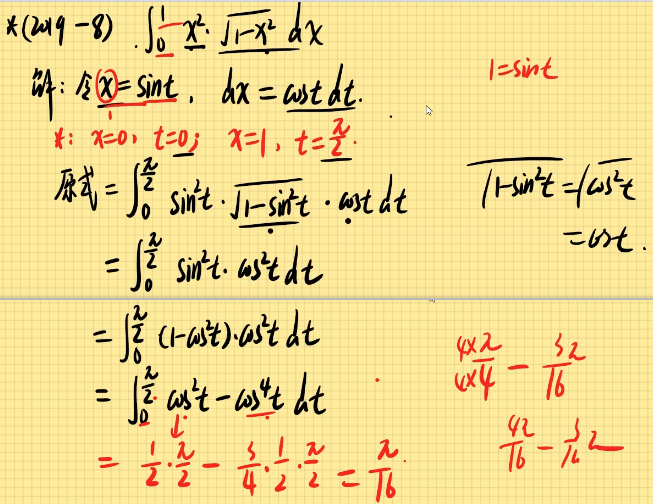 *(2019-8) ∫₀¹ x²·√(1-x²) dx
解：令x=sint, dx=cost dt.
1=sint
*: x=0, t=0; x=1, t=π/2.
原式=∫₀^(π/2) sin²t·√(1-sin²t)·cost dt
√(1-sin²t)=√(cos²t)
=cost.
=∫₀^(π/2) sin²t·cos²t dt
=∫₀^(π/2) (1-cos²t)·cos²t dt
=∫₀^(π/2) cos²t-cos⁴t dt
=1/2·π/2-3/4·1/2·π/2=π/16.
4×π/4×4-3π/16
4π/16-3/16π